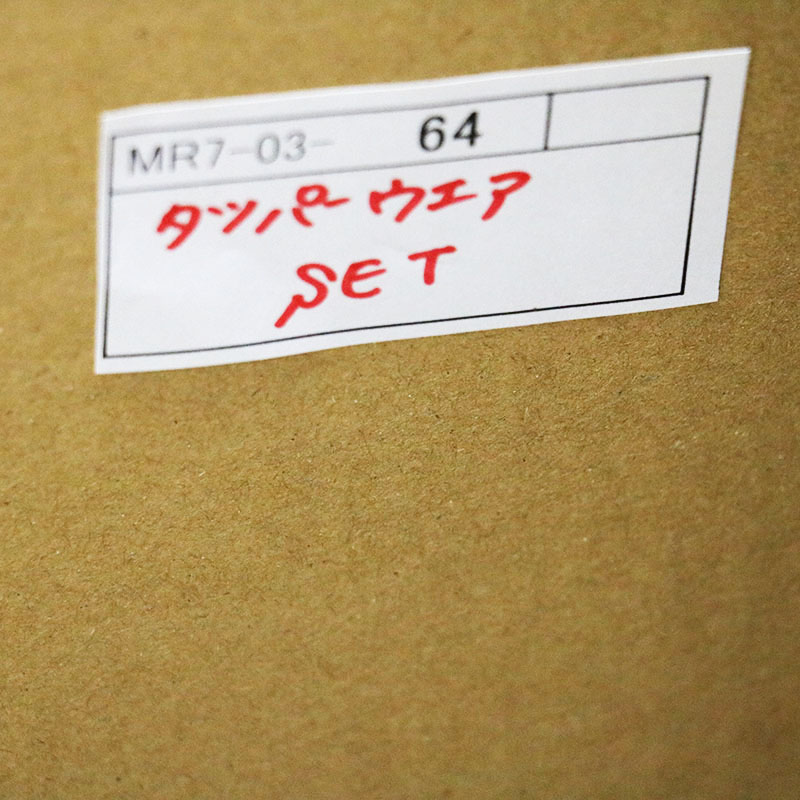 MR7-03- 64
タッパーウエア
SET